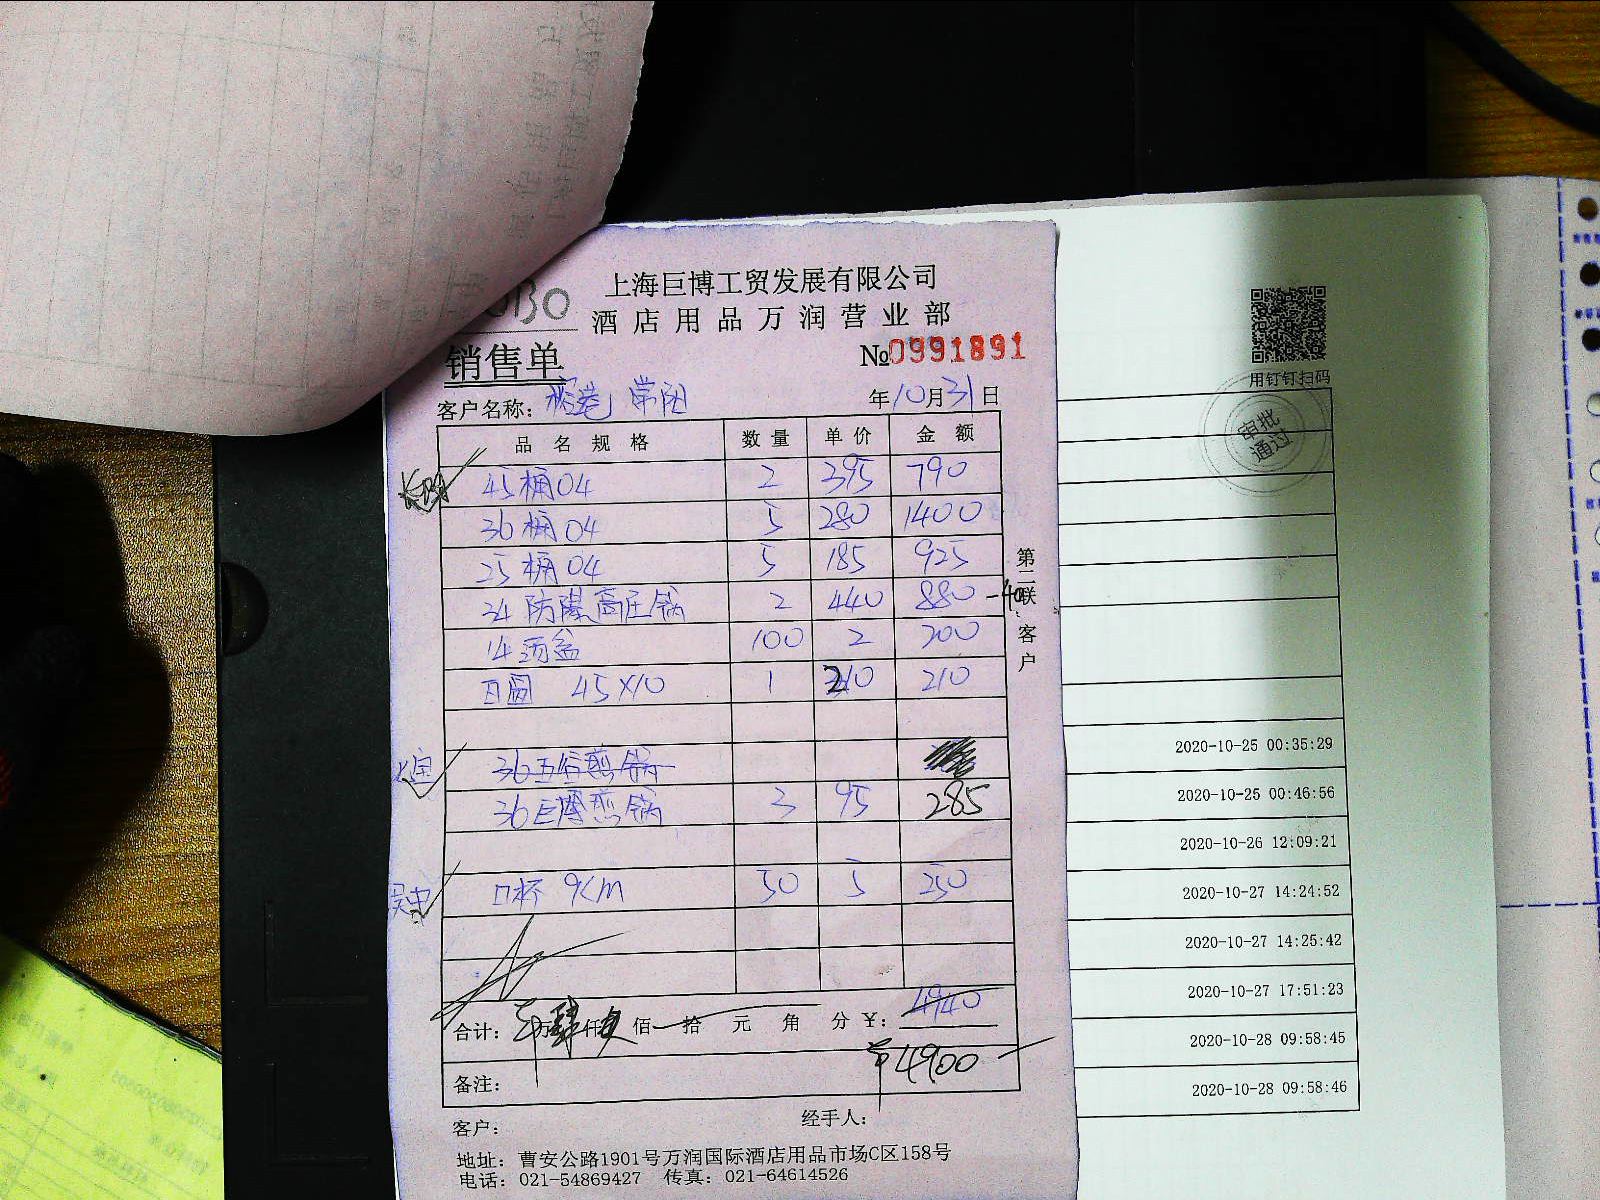 上海巨博工贸发展有限公司
酒店用品万润营业部
销售单 №0991891
客户名称: 年10月31日
品名规格 数量 单价 金额
45桶04 2 395 790
36桶04 5 280 1400
25桶04 5 185 925
34防爆高压锅 2 440 880 -40
14 盆 100 2 200
圆 45×10 1 210 210
36 锅
36 锅 3 95 285
吴中 口杯 9cm 50 5 250
第二联 客户
合计: 万 仟 佰 拾 元 角 分 ¥: 4940
¥4900
备注:
客户: 经手人:
地址: 曹安公路1901号万润国际酒店用品市场C区158号
电话: 021-54869427 传真: 021-64614526
用钉钉扫码
审批
通过
2020-10-25 00:35:29
2020-10-25 00:46:56
2020-10-26 12:09:21
2020-10-27 14:24:52
2020-10-27 14:25:42
2020-10-27 17:51:23
2020-10-28 09:58:45
2020-10-28 09:58:46